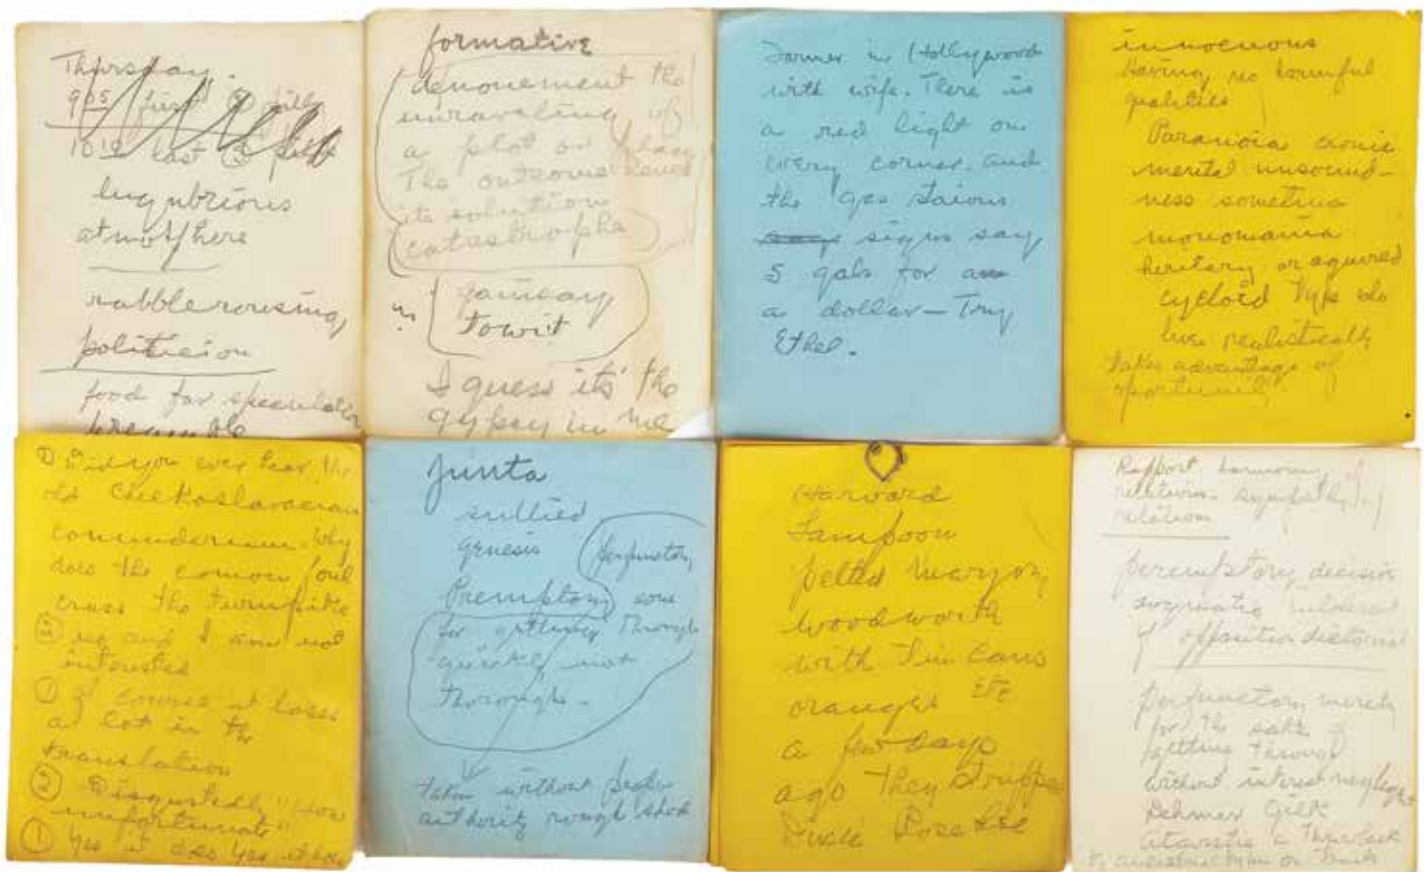 Thursday.
9 05 first
10 10 last
lugubrious
atmosfhere
rabble rousing
politicion
food for speculation
formative
denouement the
unraveling of
a plot or
The outcome
its solution
catastrophe
gainsay
towit
I guess its' the
gypsy in me
Farmer in Hollywood
with wife. There is
a red light on
every corner. and
the gas staions
signs say
5 gals for
a dollar – Try
Ethel.
innocuous
Having no harmful
qualities
Paranoia cronic
mental unsound-
ness sometims
monomania
heritary or aquired
cycloid type do
live realistically
takes advantage of
① Did you ever hear the
old Chekoslavacian
conunderum. Why
does the comon foul
cross the turnpike
② no and I am not
intersted
① of course it loses
a lot in the
translation
② Disgustedly "how
unfortunate"
① Yes it does Yes it
junta
sullied
genesis
perfunctory
Premptory done
for getting through
quickly not
thorough –
taken without proper
authority rough shod
Harvard
Lampoon
pelted Marjory
Woodworth
with Tin Cans
oranges etc
a few days
ago they stripped
Rapport harmony of
relations sympathy of
relation
peremptory decisive
dogmatic intolerant
of
perfunctory merely
for the sake of
getting through
without interest
Dehmar Gilk
atavistic a Throwback
to ancestral type or traits